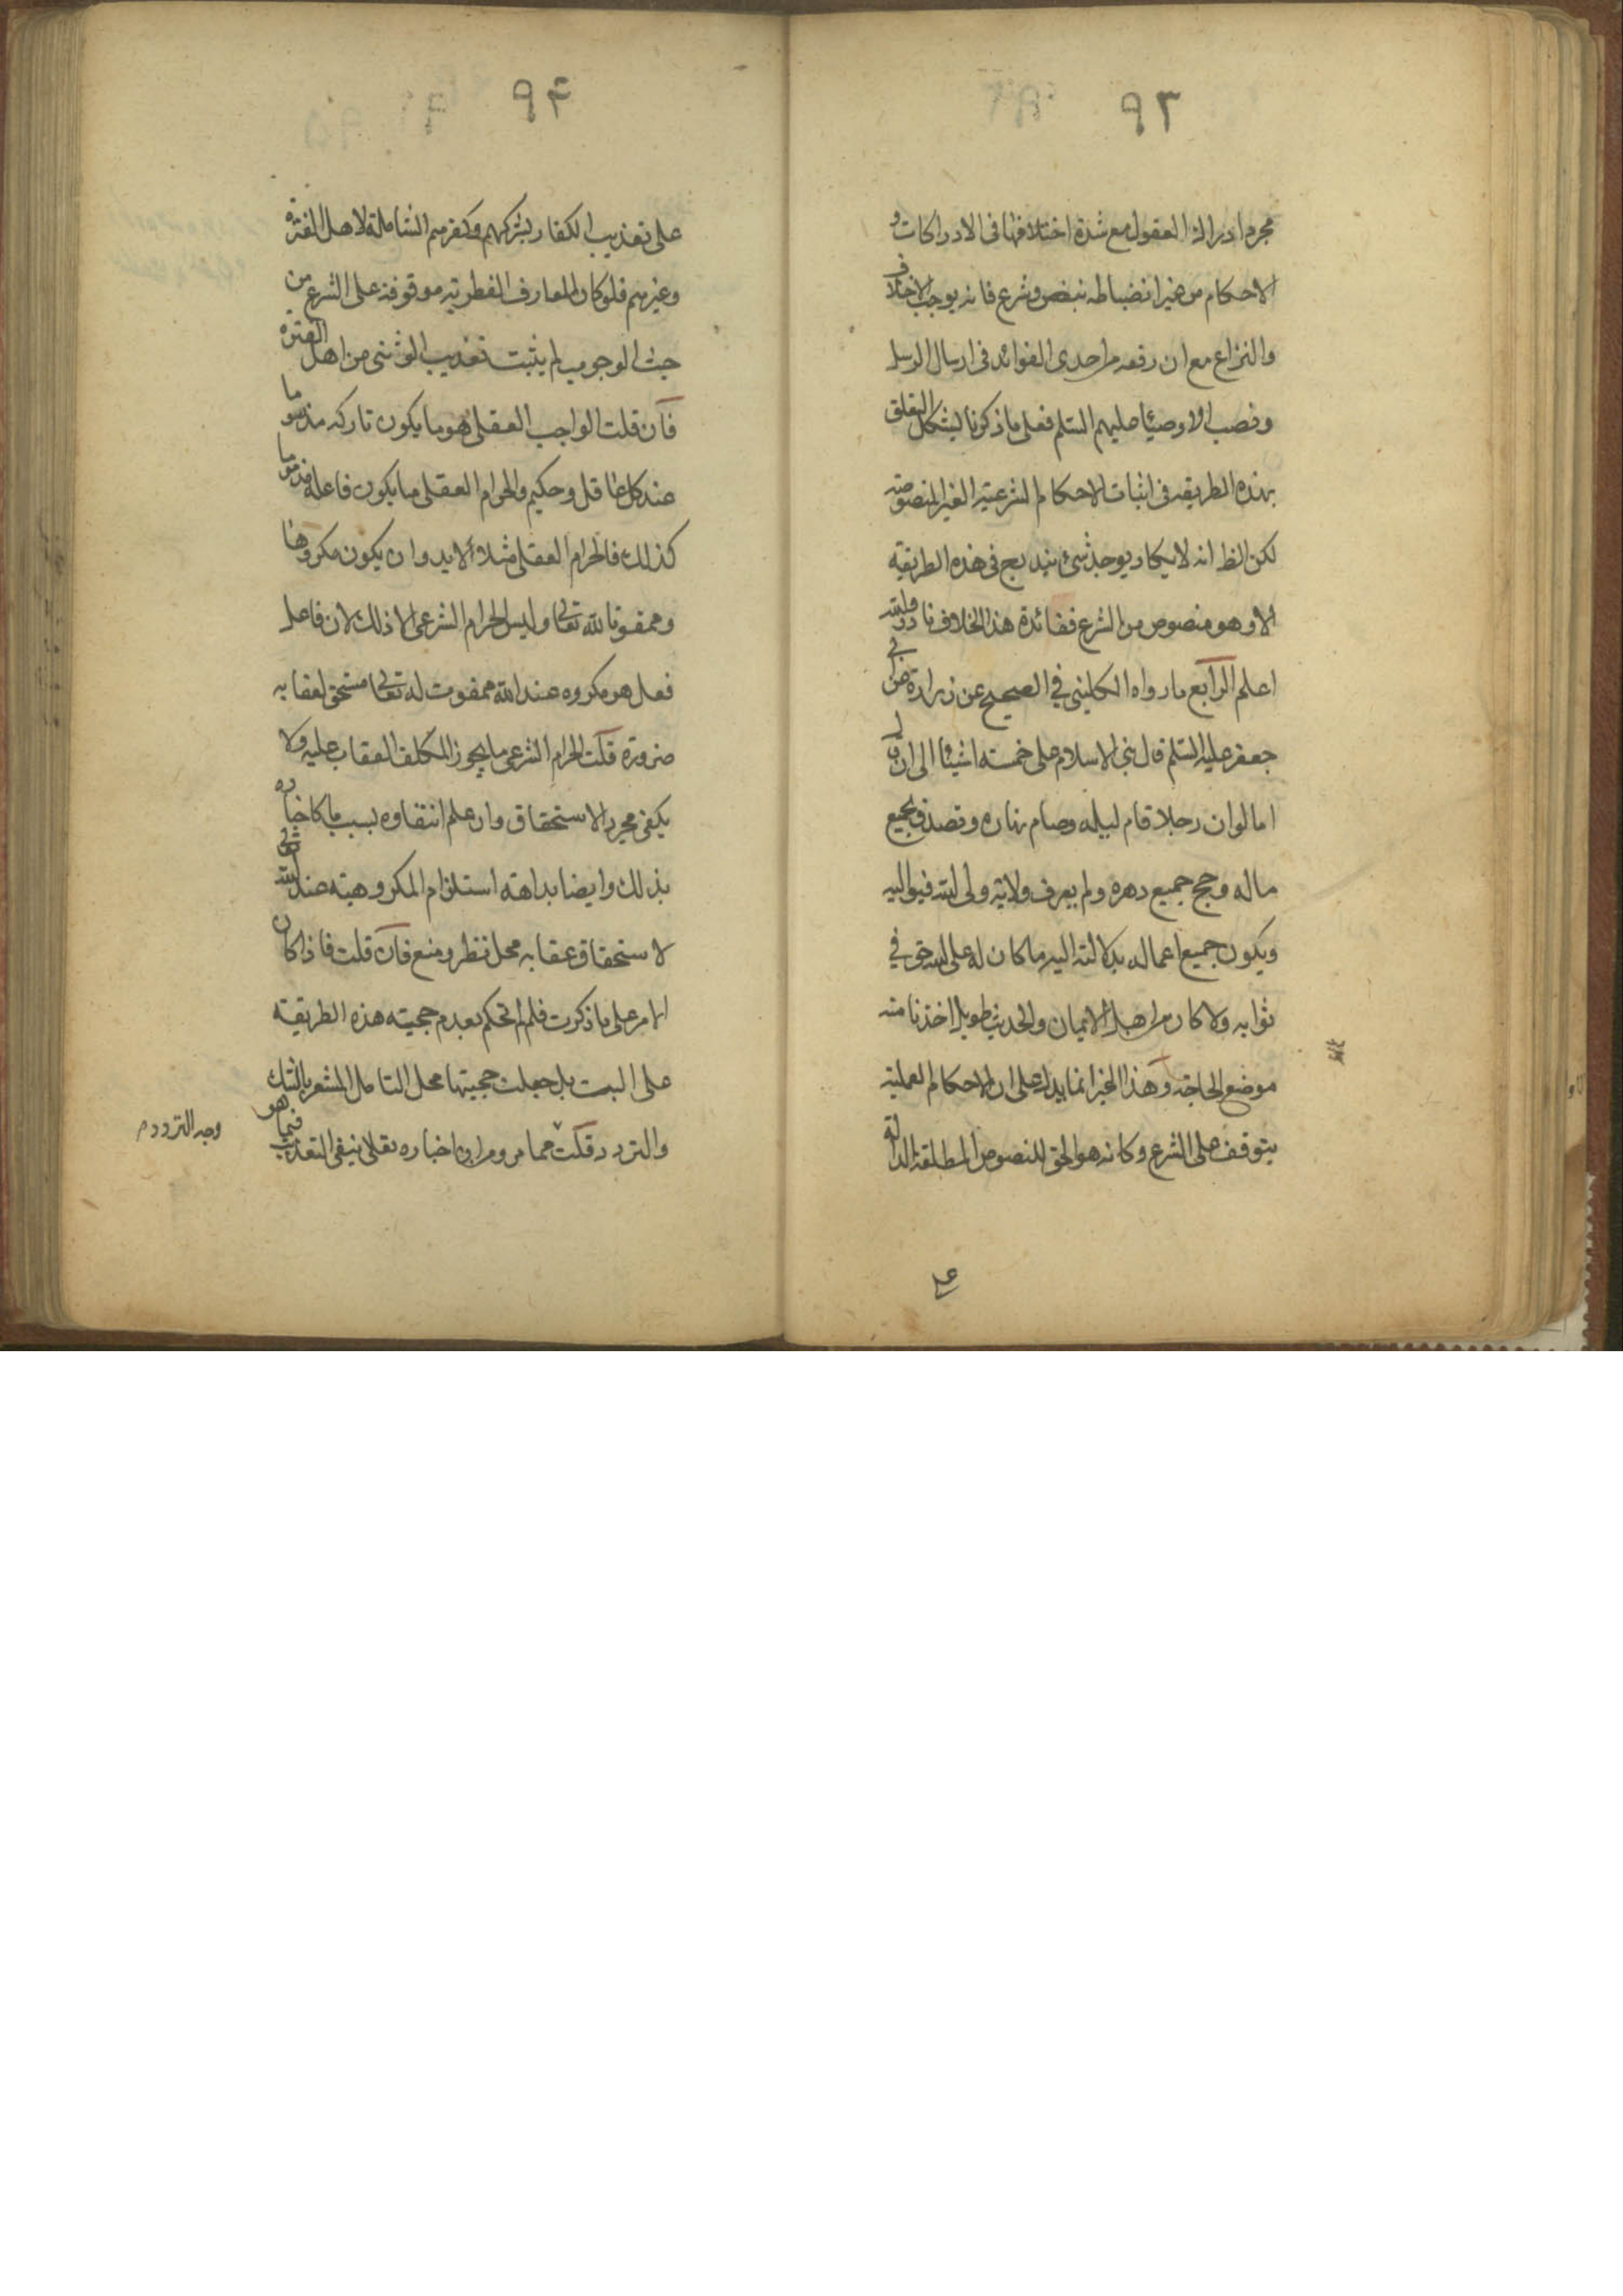 ٩٣
مجرد ادراك العقول مع شدة اختلافها فى الادراكات و
الاحكام من غير انضباطه بنص و شرع فانه يوجب الاختلاف
والنزاع مع ان رفعه من احدى الفوائد فى ارسال الرسل
ونصب الاوصياء عليهم السلم فعلى ما ذكرنا يشكل التعلق
بهذه الطريقه فى اثبات الاحكام الشرعية الغير المنصوصه
لكن الظ انه لا يكاد يوجد شئ يندرج فى هذه الطريقة
الا وهو منصوص من الشرع ففائدة هذا الخلاف نادرة والله
اعلم الرابع ما رواه الكلينى في الصحيح عن زرارة عن ابى
جعفر عليه السلم قال بنى الاسلام على خمسه اشيئا الى ان قال
اما لو ان رجلا قام ليله وصام نهاره وتصدق بجميع
ماله وحج جميع دهره ولم يعرف ولاية ولى الله فيواليه
ويكون جميع اعماله بدلالته اليه ما كان له على الله حق في
ثوابه ولا كان من اهل الايمان والحديث طويل اخذنا منه
موضع الحاجته وهذا الخبر انما يدل على ان الاحكام العملية
يتوقف على الشرع وكانه هو الحق للنصوص المطلقة الدالة
على
٩٤
على تعذيب الكفار بشركهم وكفرهم الشاملة لاهل الفترة
وغيرهم فلو كان المعارف الفطريه موقوفة على الشرع من
حيث الوجوب لم يثبت تعذيب الوثنى من اهل الفترة
فان قلت الواجب العقلى هو ما يكون تاركه مذموما
عند كل عاقل وحكيم والحرام العقلى ما يكون فاعله مذموما
كذلك فالحرام العقلى مثلا لابد وان يكون مكروها
وممقوتا لله تعالى وليس الحرام الشرعى الا ذلك لان فاعل
فعل هو مكروه عند الله ممقوت له تعالى مستحق لعقابه
ضرورة قلت الحرام الشرعى ما يجوز المكلف العقاب عليه ولا
يكفى مجرد الاستحقاق وان علم انتفاوه بسبب ما كاخباره
بذلك وايضا بداهته استلزام المكروهيته عند الله تعالى
لاستحقاق عقابه محل نظر ومنع فان قلت فاذا كان
الامر على ما ذكرت فلم لم تحكم بعدم حجيته هذه الطريقية
على البت بل جعلت حجيتها محل التامل المشعر بالشك
والتردد قلت مما مر ومن ان اخباره تعالى بنفى التعذيب فيما هو
وجه التردد م